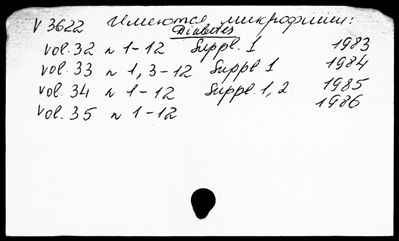 V 3622 Имеются микрофиши:
Diabetes
vol. 32 n 1-12 Suppl. 1 1983
vol. 33 n 1, 3-12 Suppl 1 1984
vol. 34 n 1-12 Suppl. 1, 2 1985
vol. 35 n 1-12 1986